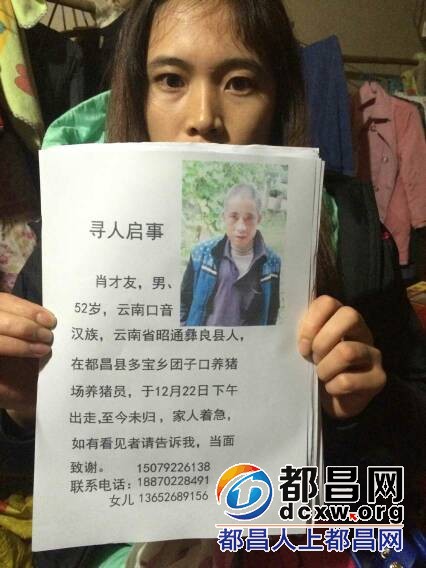 寻人启事
肖才友，男、
52岁，云南口音
汉族，云南省昭通彝良县人，
在都昌县多宝乡团子口养猪
场养猪员，于12月22日下午
出走，至今未归，家人着急，
如有看见者请告诉我，当面
致谢。 15079226138
联系电话：18870228491
女儿 13652689156
都昌网
dcxw.org
都昌人上都昌网